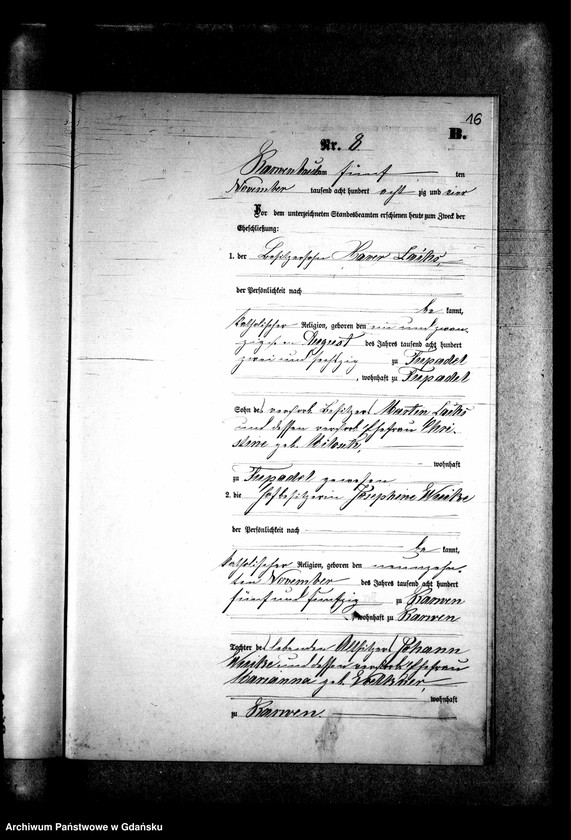 16
B.
Nr. 8
Karwenbruch am fünf ten
November tausend acht hundert acht zig und vier
Vor dem unterzeichneten Standesbeamten erschienen heute zum Zweck der
Eheschließung:
1. der Besitzersohn Xaver
der Persönlichkeit nach
be kannt,
katholischer Religion, geboren den ein und zwan-
zigsten August des Jahres tausend acht hundert
zwei und sechszig zu Tupadel
, wohnhaft zu Tupadel
Sohn des verstorb. Besitzers Martin
und dessen verstorb. Ehefrau Chri-
stine geb.
wohnhaft
zu Tupadel gewesen
2. die Hofbesitzerin Josephine
der Persönlichkeit nach
be kannt,
katholischer Religion, geboren den neunzehn-
ten November des Jahres tausend acht hundert
fünf und fünfzig zu Karwen
, wohnhaft zu Karwen
Tochter des lebenden Altsitzers Johann
und dessen verstorb. Ehefrau
Marianna geb.
wohnhaft
zu Karwen.
Archiwum Państwowe w Gdańsku